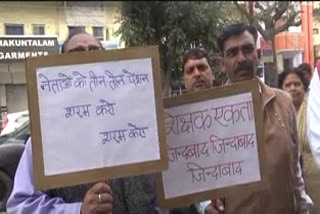 SHAKUNTALAM
GARMENTS
नेताओं को तीन तीन पेंशन
शरम करो
शरम करो
शिक्षक एकता
जिन्दाबाद जिन्दाबाद
जिन्दाबाद